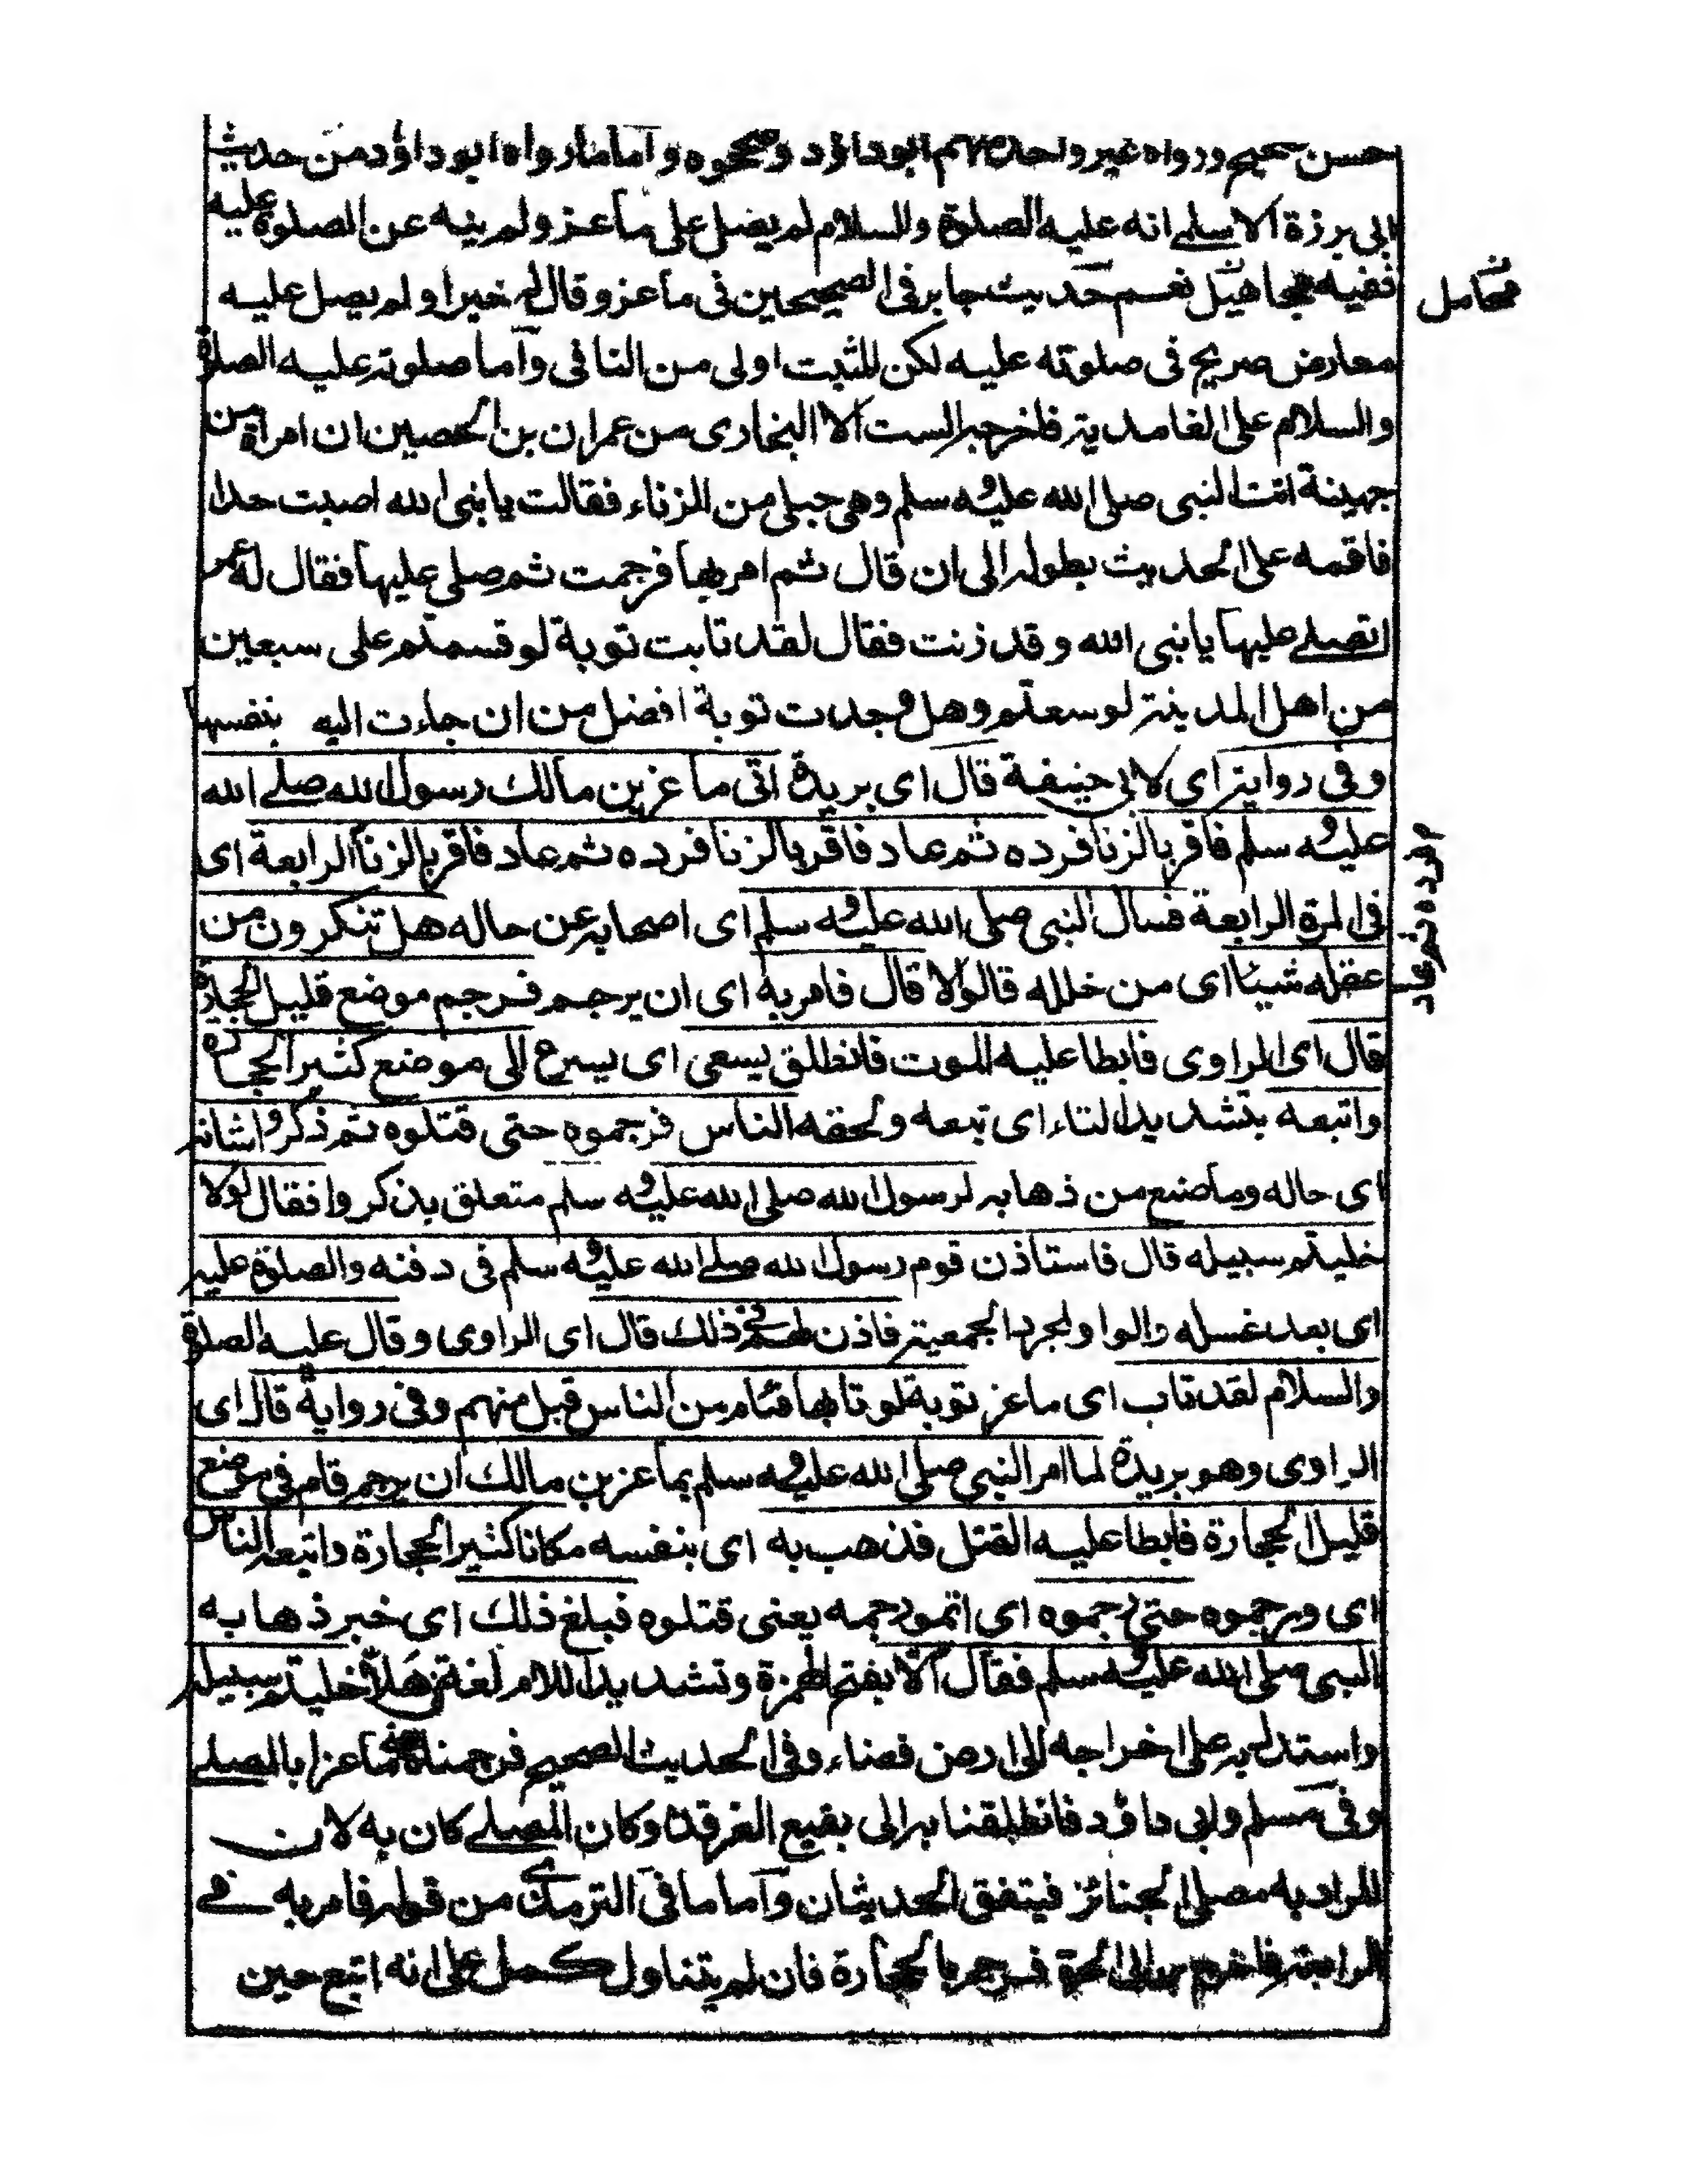 حسن صحيح ورواه غير واحد منهم ابو داؤد وصححوه وآما ما رواه ابو داؤد من حديث
ابى برزة الاسلمے انه عليه الصلوة والسلام لم يصل على ماعز ولم ينه عن الصلوة عليه
ففيه مجاهيل نعم حديث جابر فى الصحيحين فى ماعز وقال له خيرا ولم يصل عليه
معارض صريح فى صلوته عليه لكن المثبت اولى من النافى وآما صلوته عليه الصلوة
والسلام على الغامدية فاخرجه الست الا البخارى من عمران بن الحصين ان امراة من
جهينة اتت النبى صلى الله عليه وسلم وهى حبلى من الزناء فقالت يا نبى الله اصبت حدا
فاقمه على الحديث بطوله الى ان قال ثم امر بها فرجمت ثم صلى عليها فقال له عمر
اتصلے عليها يا نبى الله وقد زنت فقال لقد تابت توبة لو قسمتم على سبعين
من اهل المدينة لوسعتم وهل وجدت توبة افضل من ان جاءت اليه بنفسها
وفى رواية اى لابى حنيفة قال اى بريدة اتى ماعز بن مالك رسول الله صلے الله
عليه وسلم فاقر بالزنا فرده ثم عاد فاقر بالزنا فرده ثم عاد فاقر بالزنا الرابعة اى
فى المرة الرابعة فسال النبى صلى الله عليه وسلم اى اصحابه عن حاله هل تنكرون من
عقله شيئا اى من خلله قالوا لا قال فامر به اى ان يرجم فرجم موضع قليل الحجارة
قال اى الراوى فابطا عليه الموت فانطلق يسعى اى يسرع الى موضع كثير الحجارة
واتبعه بتشديد التاء اى تبعه ولحقه الناس فرجموه حتى قتلوه ثم ذكروا شانه
اى حاله وما صنع من ذهابه لرسول الله صلى الله عليه وسلم متعلق بذكروا فقال لولا
خليتم سبيله قال فاستاذن قوم رسول الله صلے الله عليه وسلم فى دفنه والصلوة عليه
اى بعد غسله والواو لمجرد الجمعية فاذن لهم فے ذلك قال اى الراوى وقال عليه الصلوة
والسلام لقد تاب اى ماعز توبة لو تابها فئام من الناس قبل منهم وفى رواية قال اى
الراوى وهو بريدة لما امر النبى صلى الله عليه وسلم بماعز بن مالك ان يرجم قام فى موضع
قليل الحجارة فابطا عليه القتل فذهب به اى بنفسه مكانا كثير الحجارة واتبعه الناس
اى ورجموه حتى رجموه اى اتموا رجمه يعنى قتلوه فبلغ ذلك اى خبر ذهابه
النبى صلى الله عليه وسلم فقال الّا بفتح الهمزة وتشديد اللام لغة فى هلّا خليتم سبيله
واستدل به على اخراجه الى ارض فضاء وفى الحديث الصحيح فرجمناه يعنى ماعزا بالمصلے
وفى مسلم وابى داؤد فانطلقنا به الى بقيع الغرقد وكان المصلے كان به لان
المراد به مصلى الجنائز فيتفق الحديثان وآما ما فى الترمذى من قوله فامر به فے
الرابعة فاخرج به الى الحرة فرجم بالحجارة فان لم يتناول كحمل على انه اتبع حين
تحامل
فرده ثم عاد